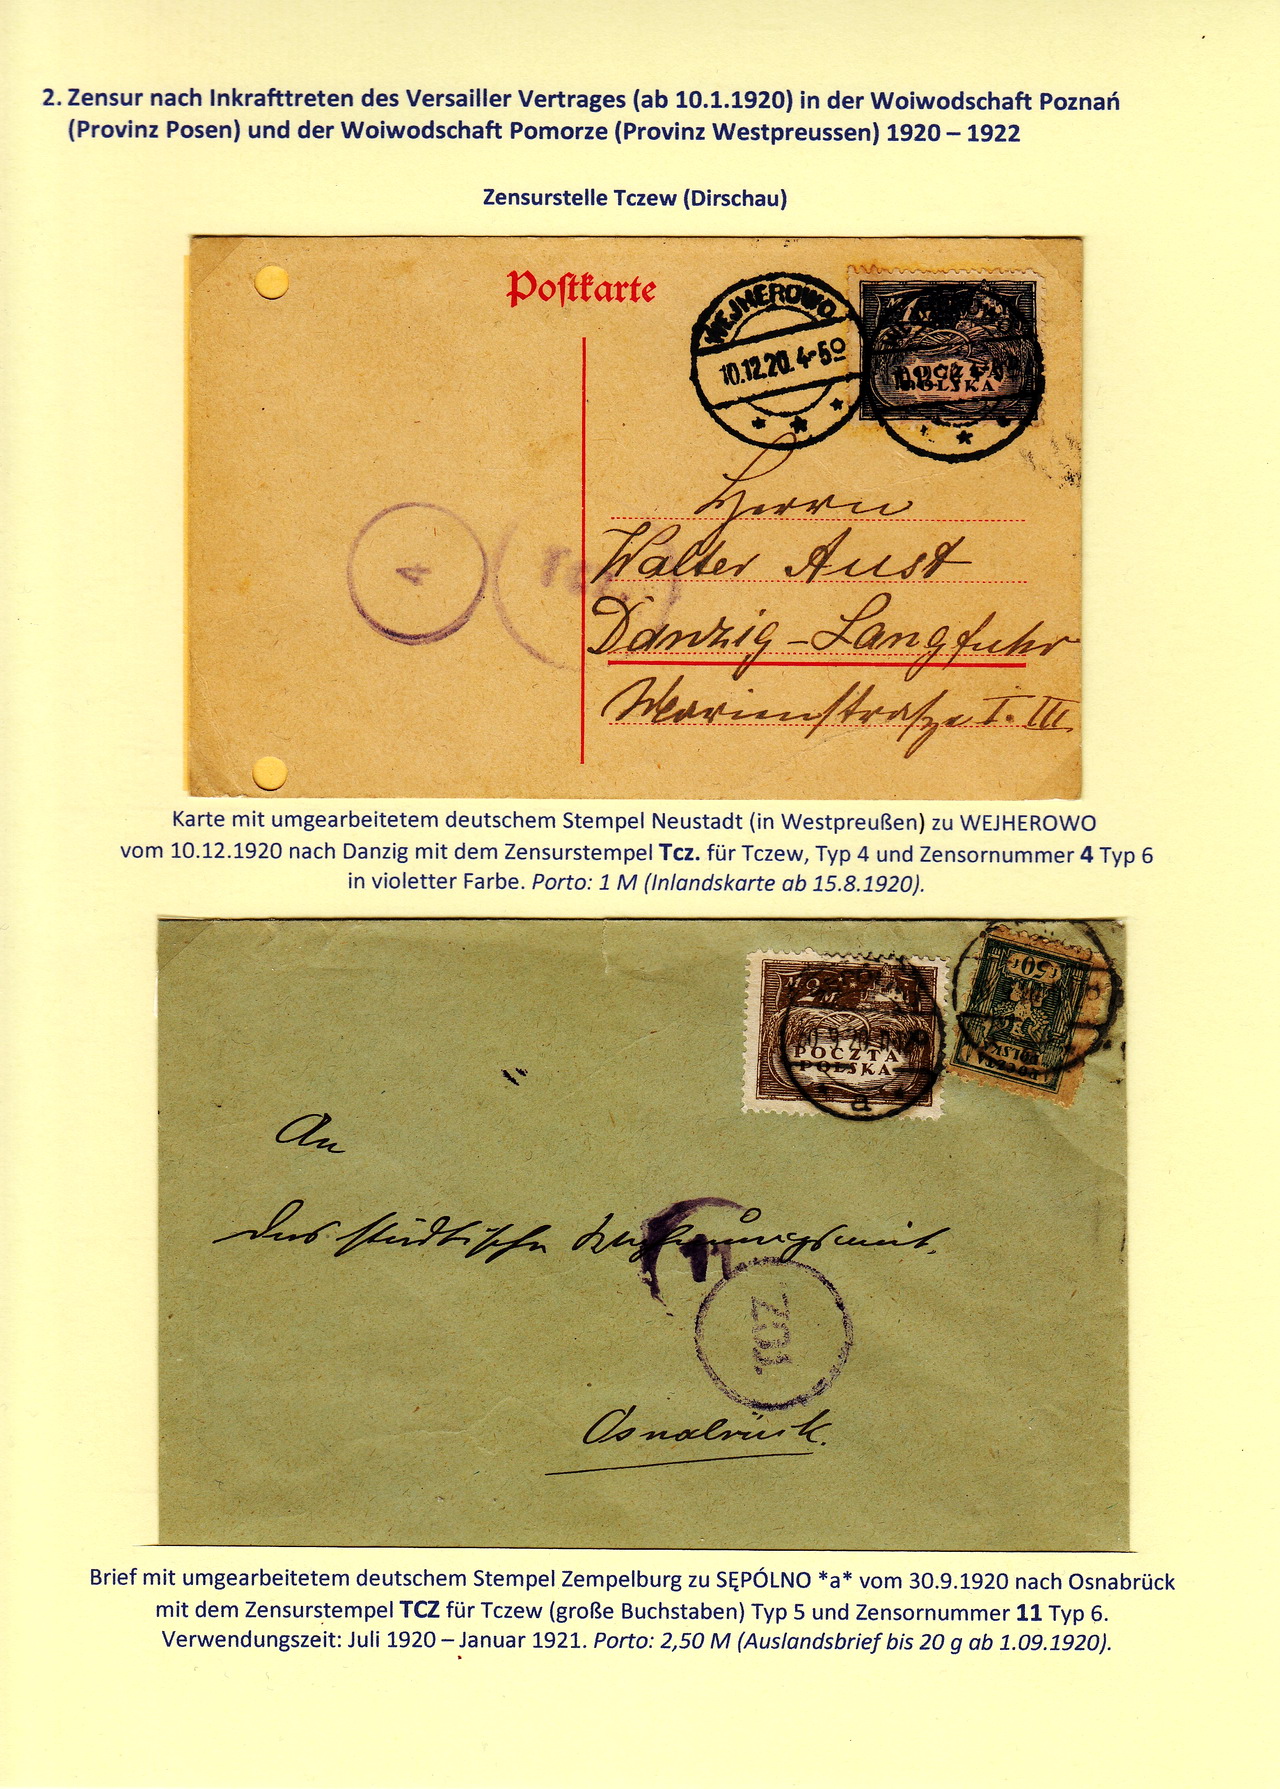 2. Zensur nach Inkrafttreten des Versailler Vertrages (ab 10.1.1920) in der Woiwodschaft Poznań
(Provinz Posen) und der Woiwodschaft Pomorze (Provinz Westpreussen) 1920 – 1922
Zensurstelle Tczew (Dirschau)
Postkarte
WEJHEROWO
10.12.20. 4-5⁰
POCZTA
POLSKA
Herrn
Walter Aust
Danzig-Langfuhr
Marienstraße I. III
4
Tcz.
Karte mit umgearbeitetem deutschem Stempel Neustadt (in Westpreußen) zu WEJHEROWO
vom 10.12.1920 nach Danzig mit dem Zensurstempel Tcz. für Tczew, Typ 4 und Zensornummer 4 Typ 6
in violetter Farbe. Porto: 1 M (Inlandskarte ab 15.8.1920).
M 2 M
POCZTA
POLSKA
a
50 f
POCZTA
POLSKA
An
das städtische Wohnungsamt,
11
TCZ.
Osnabrück.
Brief mit umgearbeitetem deutschem Stempel Zempelburg zu SĘPÓLNO *a* vom 30.9.1920 nach Osnabrück
mit dem Zensurstempel TCZ für Tczew (große Buchstaben) Typ 5 und Zensornummer 11 Typ 6.
Verwendungszeit: Juli 1920 – Januar 1921. Porto: 2,50 M (Auslandsbrief bis 20 g ab 1.09.1920).